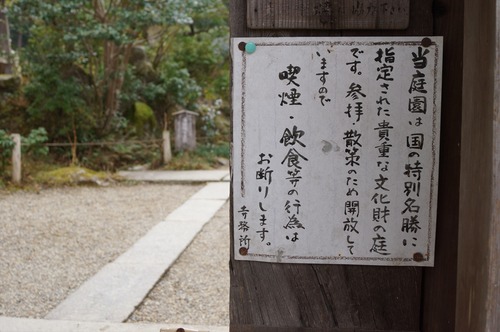 当庭園は国の特別名勝に
指定された貴重な文化財の庭
です。参拝・散策のため開放して
いますので
喫煙・飲食等の行為は
お断りします。
寺務所